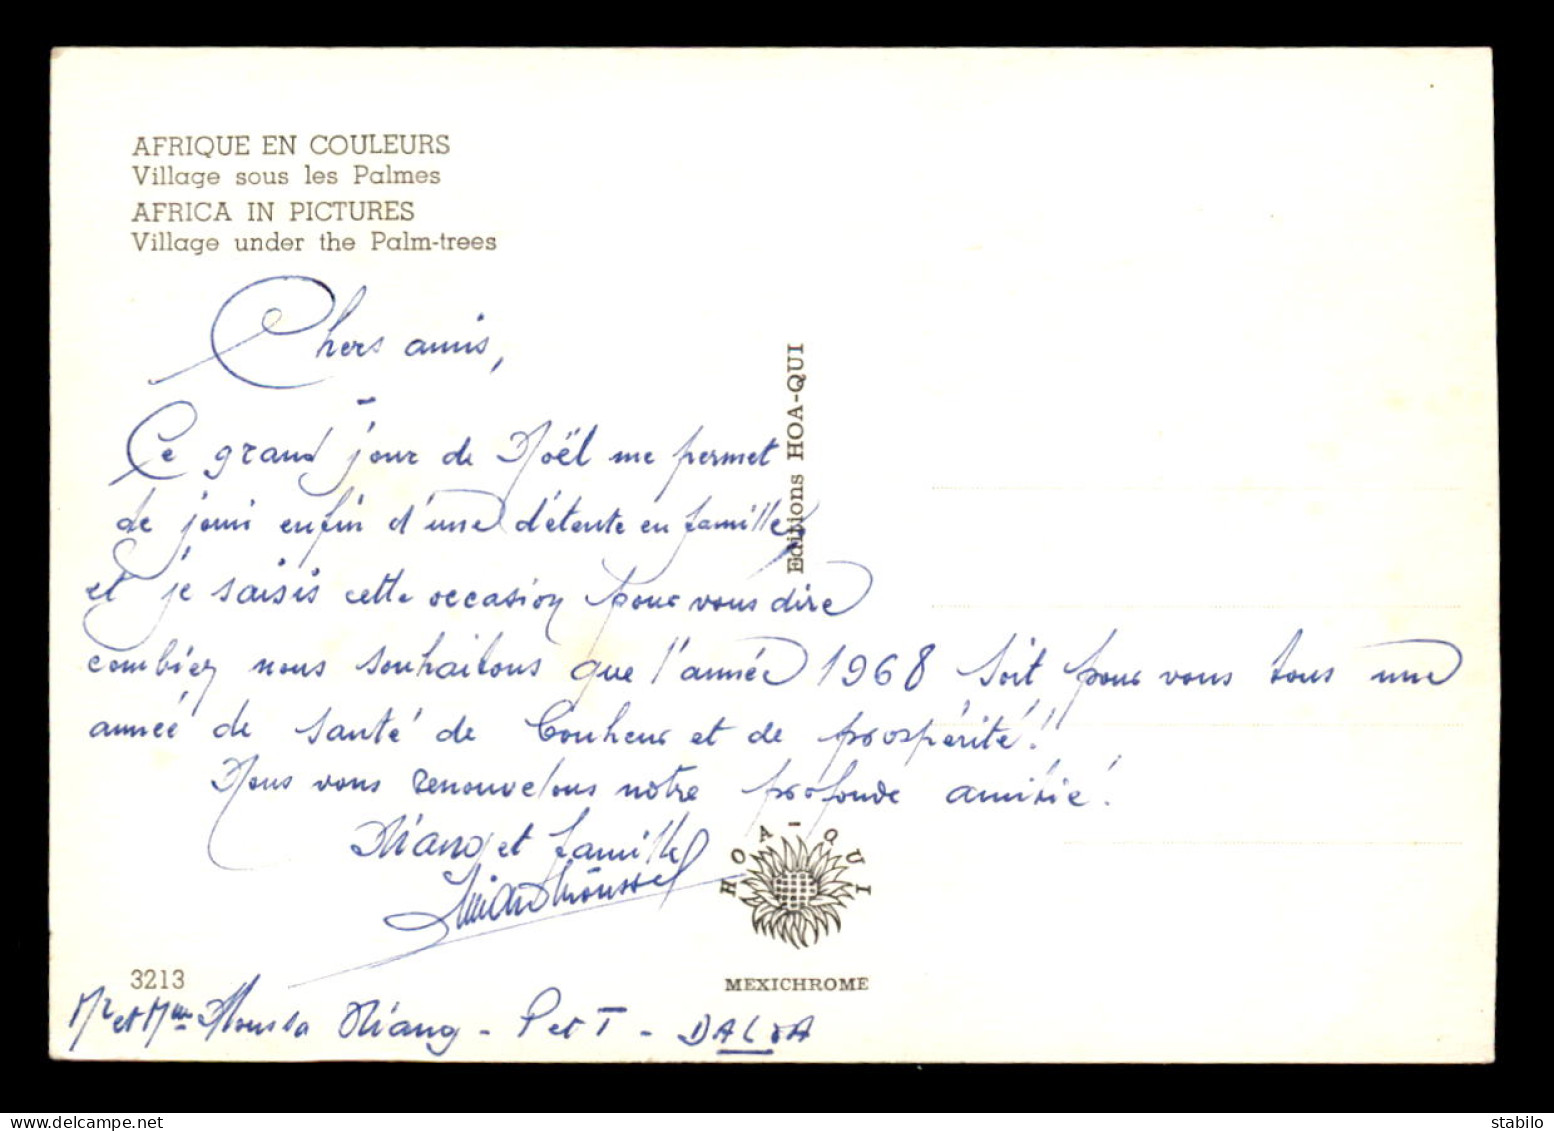 AFRIQUE EN COULEURS
Village sous les Palmes
AFRICA IN PICTURES
Village under the Palm-trees
Chers amis,
Ce grand jour de Noël me permet
de joui enfin d'une détente en famille,
et je saisis cette occasion pour vous dire
combien nous souhaitons que l'année 1968 soit pour vous tous une
année de santé de bonheur et de prospérité!!
Nous vous renouvelons notre profonde amitié.
Niang et famille
Editions HOA-QUI
HOA-QUI
MEXICHROME
3213
Mr et Mme Moussa Niang - P et T -
stabilo